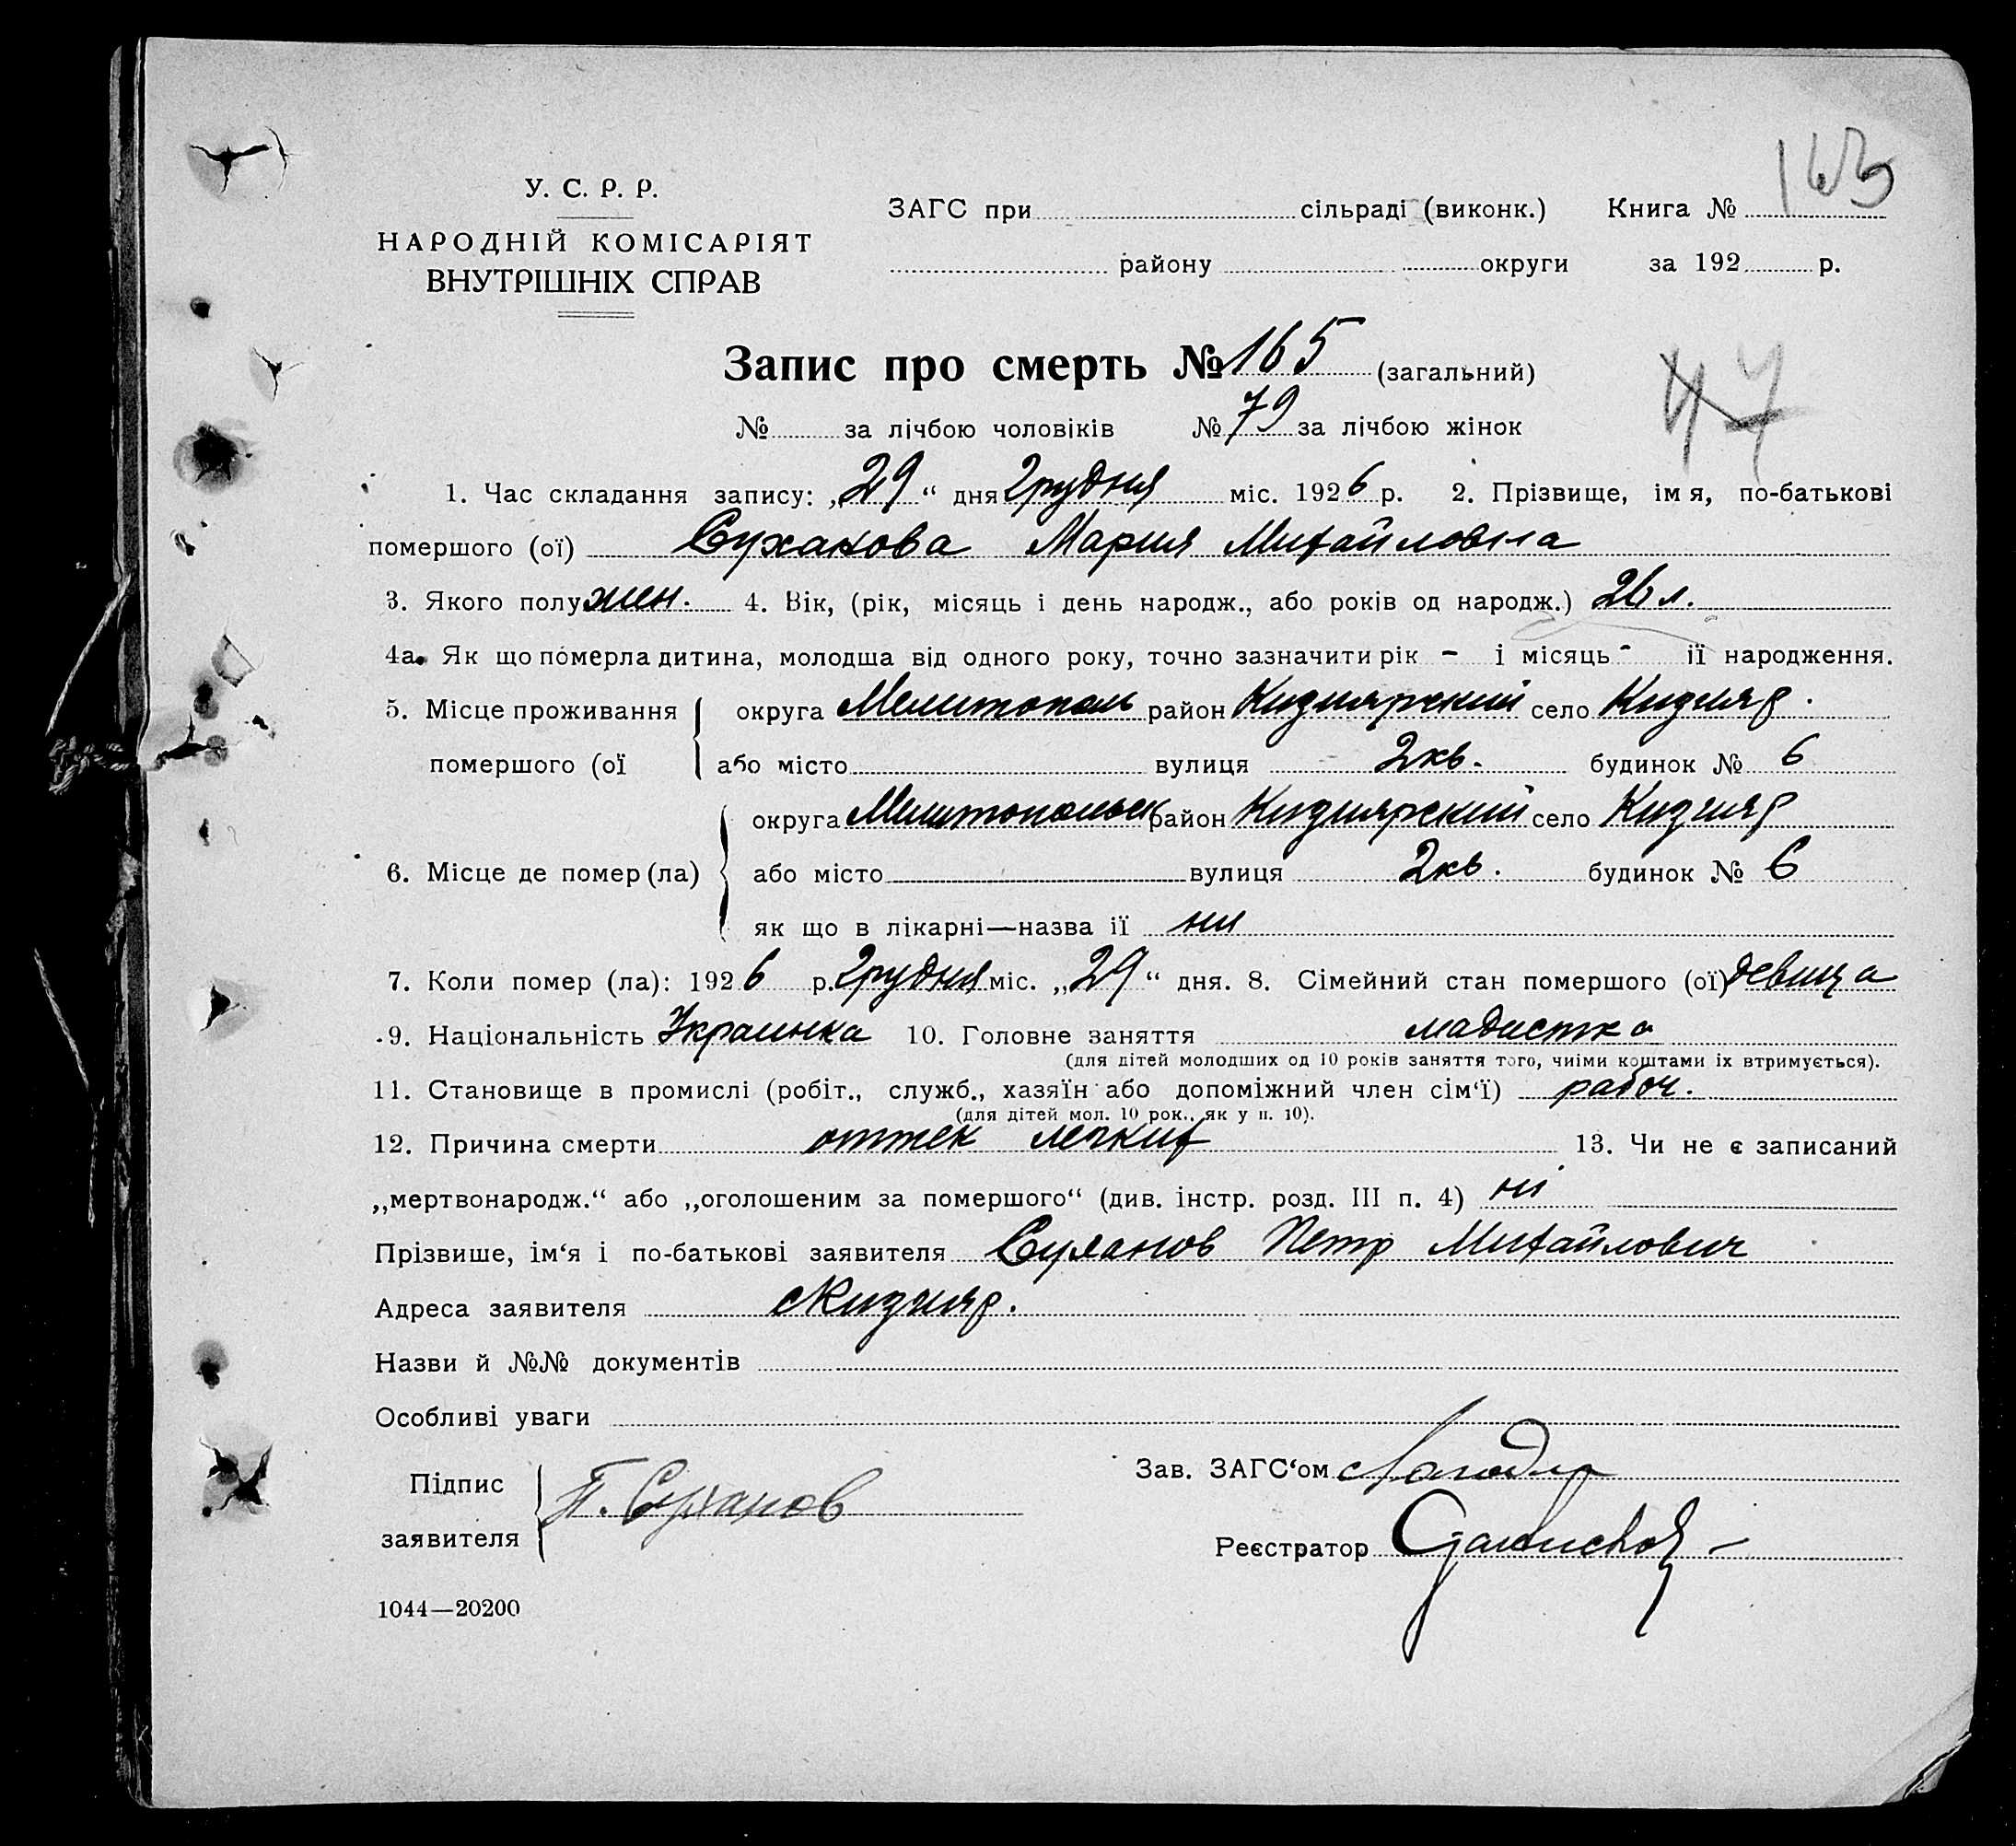 163
У. С. Р. Р.
НАРОДНІЙ КОМІСАРІЯТ
ВНУТРІШНІХ СПРАВ
ЗАГС при сільраді (виконк.) Книга №
району округи за 192 р.
Запис про смерть № 165 (загальний)
47
№ за лічбою чоловіків № 79 за лічбою жінок
1. Час складання запису: „29“ дня Грудня міс. 1926 р. 2. Прізвище, імя, по-батькові
помершого (ої) Суханова Мария Михайловна
3. Якого полу жен. 4. Вік, (рік, місяць і день народж., або років од народж.) 26 л.
4а. Як що померла дитина, молодша від одного року, точно зазначити рік - і місяць - її народження.
5. Місце проживання округа Мелитополь район Кизиярский село Кизияр.
помершого (ої або місто вулиця 2кв. будинок № 6
округа Мелитопольск район Кизиярский село Кизияр
6. Місце де помер (ла) або місто вулиця 2кв. будинок № 6
як що в лікарні—назва її ни
7. Коли помер (ла): 1926 р. Грудня міс. „29“ дня. 8. Сімейний стан помершого (ої) девица
9. Національність Украинка 10. Головне заняття мадистка
(для дітей молодших од 10 років заняття того, чиїми коштами їх втримується).
11. Становище в промислі (робіт., служб., хазяїн або допоміжний член сім‘ї) рабоч.
(для дітей мол. 10 рок., як у п. 10).
12. Причина смерти оттек легких 13. Чи не є записаний
„мертвонародж.“ або „оголошеним за помершого“ (див. інстр. розд. III п. 4) ні
Прізвише, ім‘я і по-батькові заявителя Суханов Петр Михайлович
Адреса заявителя с Кизияр.
Назви й №№ документів
Особливі уваги
Підпис
заявителя П. Суханов
Зав. ЗАГС‘ом
Реєстратор
1044—20200